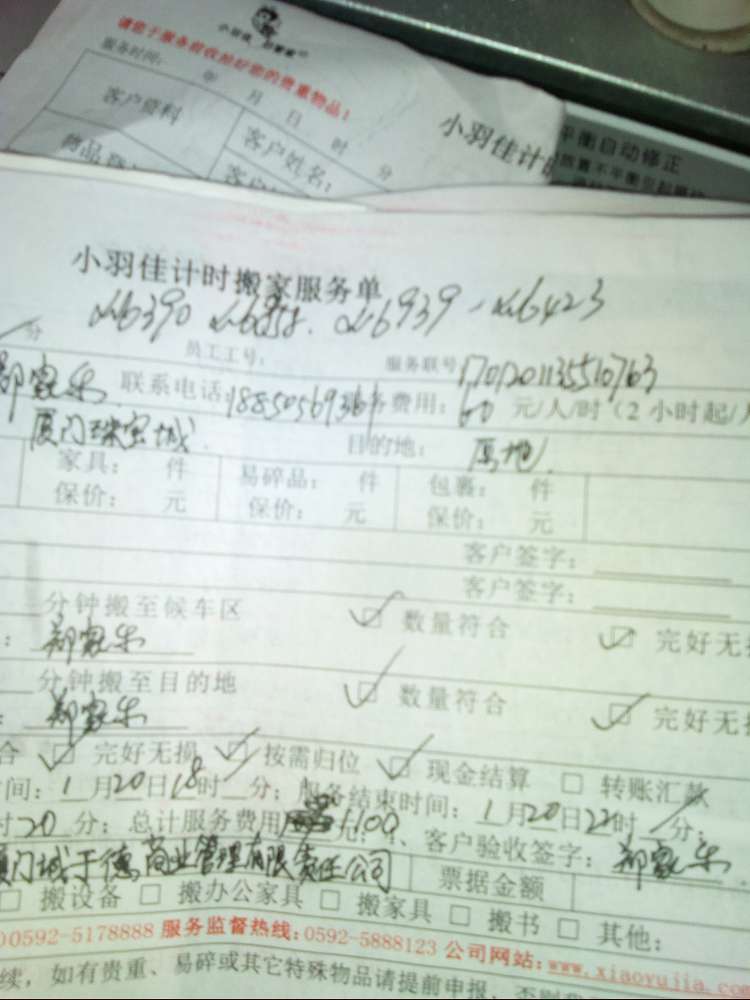 请您于服务前收拾好您的贵重物品!
服务时间: 年 月 日 时 分
客户资料 客户姓名:
小羽佳计时
平衡自动修正
小羽佳计时搬家服务单
x6390 x6939 - x6423
分 员工工号: 服务联号 170120113551 0763
郑家乐 联系电话: 18850569361 服务费用: 60 元/人/时(2小时起/
厦门珠宝城 目的地: 原地
家具: 件 易碎品: 件 包裹: 件
保价: 元 保价: 元 保价: 元
客户签字:
客户签字:
分钟搬至候车区 ☑ 数量符合 ☑ 完好无损
: 郑家乐
分钟搬至目的地 ☑ 数量符合 ☑ 完好无损
: 郑家乐
合 ☑ 完好无损 ☑ 按需归位 ☑ 现金结算 □ 转账汇款
时间: 1月20日18时 分; 服务结束时间: 1月20日22时 分;
时20分; 总计服务费用 1100 元; 客户验收签字: 郑家乐
商业管理有限责任公司 票据金额
□ 搬设备 □ 搬办公家具 □ 搬家具 □ 搬书 □ 其他:
0592-5178888 服务监督热线:0592-5888123 公司网站:www.xiaoyujia.com
续, 如有贵重、易碎或其它特殊物品请提前申报,